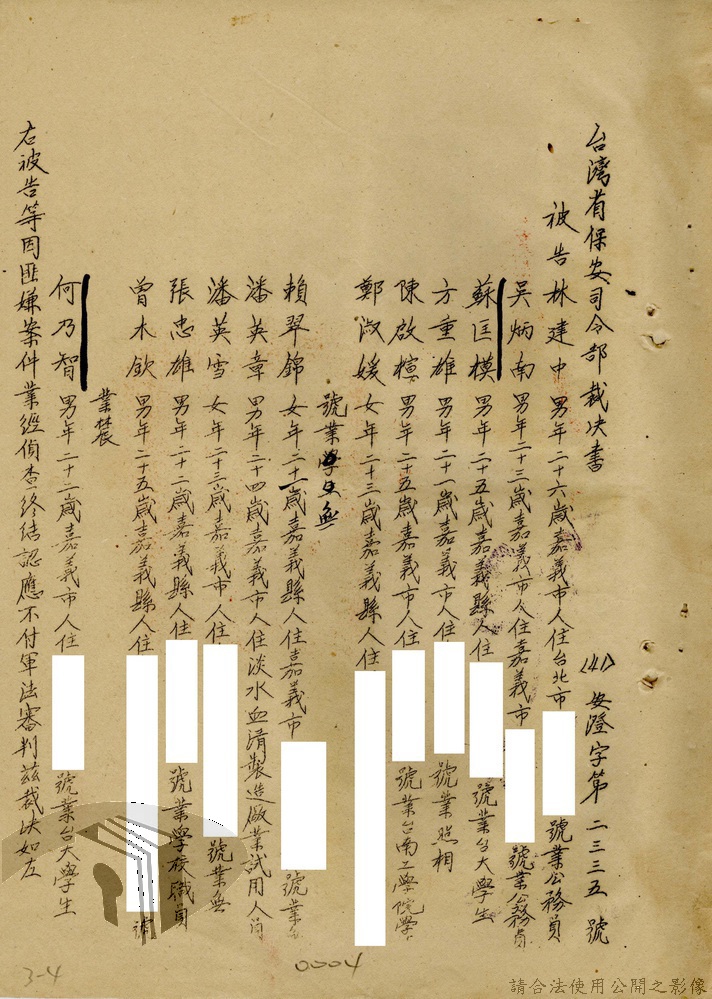 台灣省保安司令部裁決書
(41)安澄字第二三三五號
被告林建中男年二十六歲嘉義市人住台北市 號業公務員
吳炳南男年二十三歲嘉義市人住嘉義市 號業公務員
蘇匡模男年二十五歲嘉義縣人住 號業台大學生
方重雄男年二十一歲嘉義市人住 號業照相
陳啟楦男年二十五歲嘉義市人住 號業台南工學院學
鄭淑媛女年二十三歲嘉義縣人住
號業學生無
賴翠錦女年二十二歲嘉義縣人住嘉義市 號業
潘英章男年二十四歲嘉義市人住淡水血清製造廠業試用人員
潘英雪女年二十三歲嘉義市人住 號業無
張忠雄男年二十二歲嘉義縣人住 號業學校職員
曾木欽男年二十五歲嘉義縣人住 號
業農
何乃智男年二十二歲嘉義市人住 號業台大學生
右被告等因匪嫌案件業經偵查終結認應不付軍法審判茲裁決如左
3-4
0004
請合法使用公開之影像